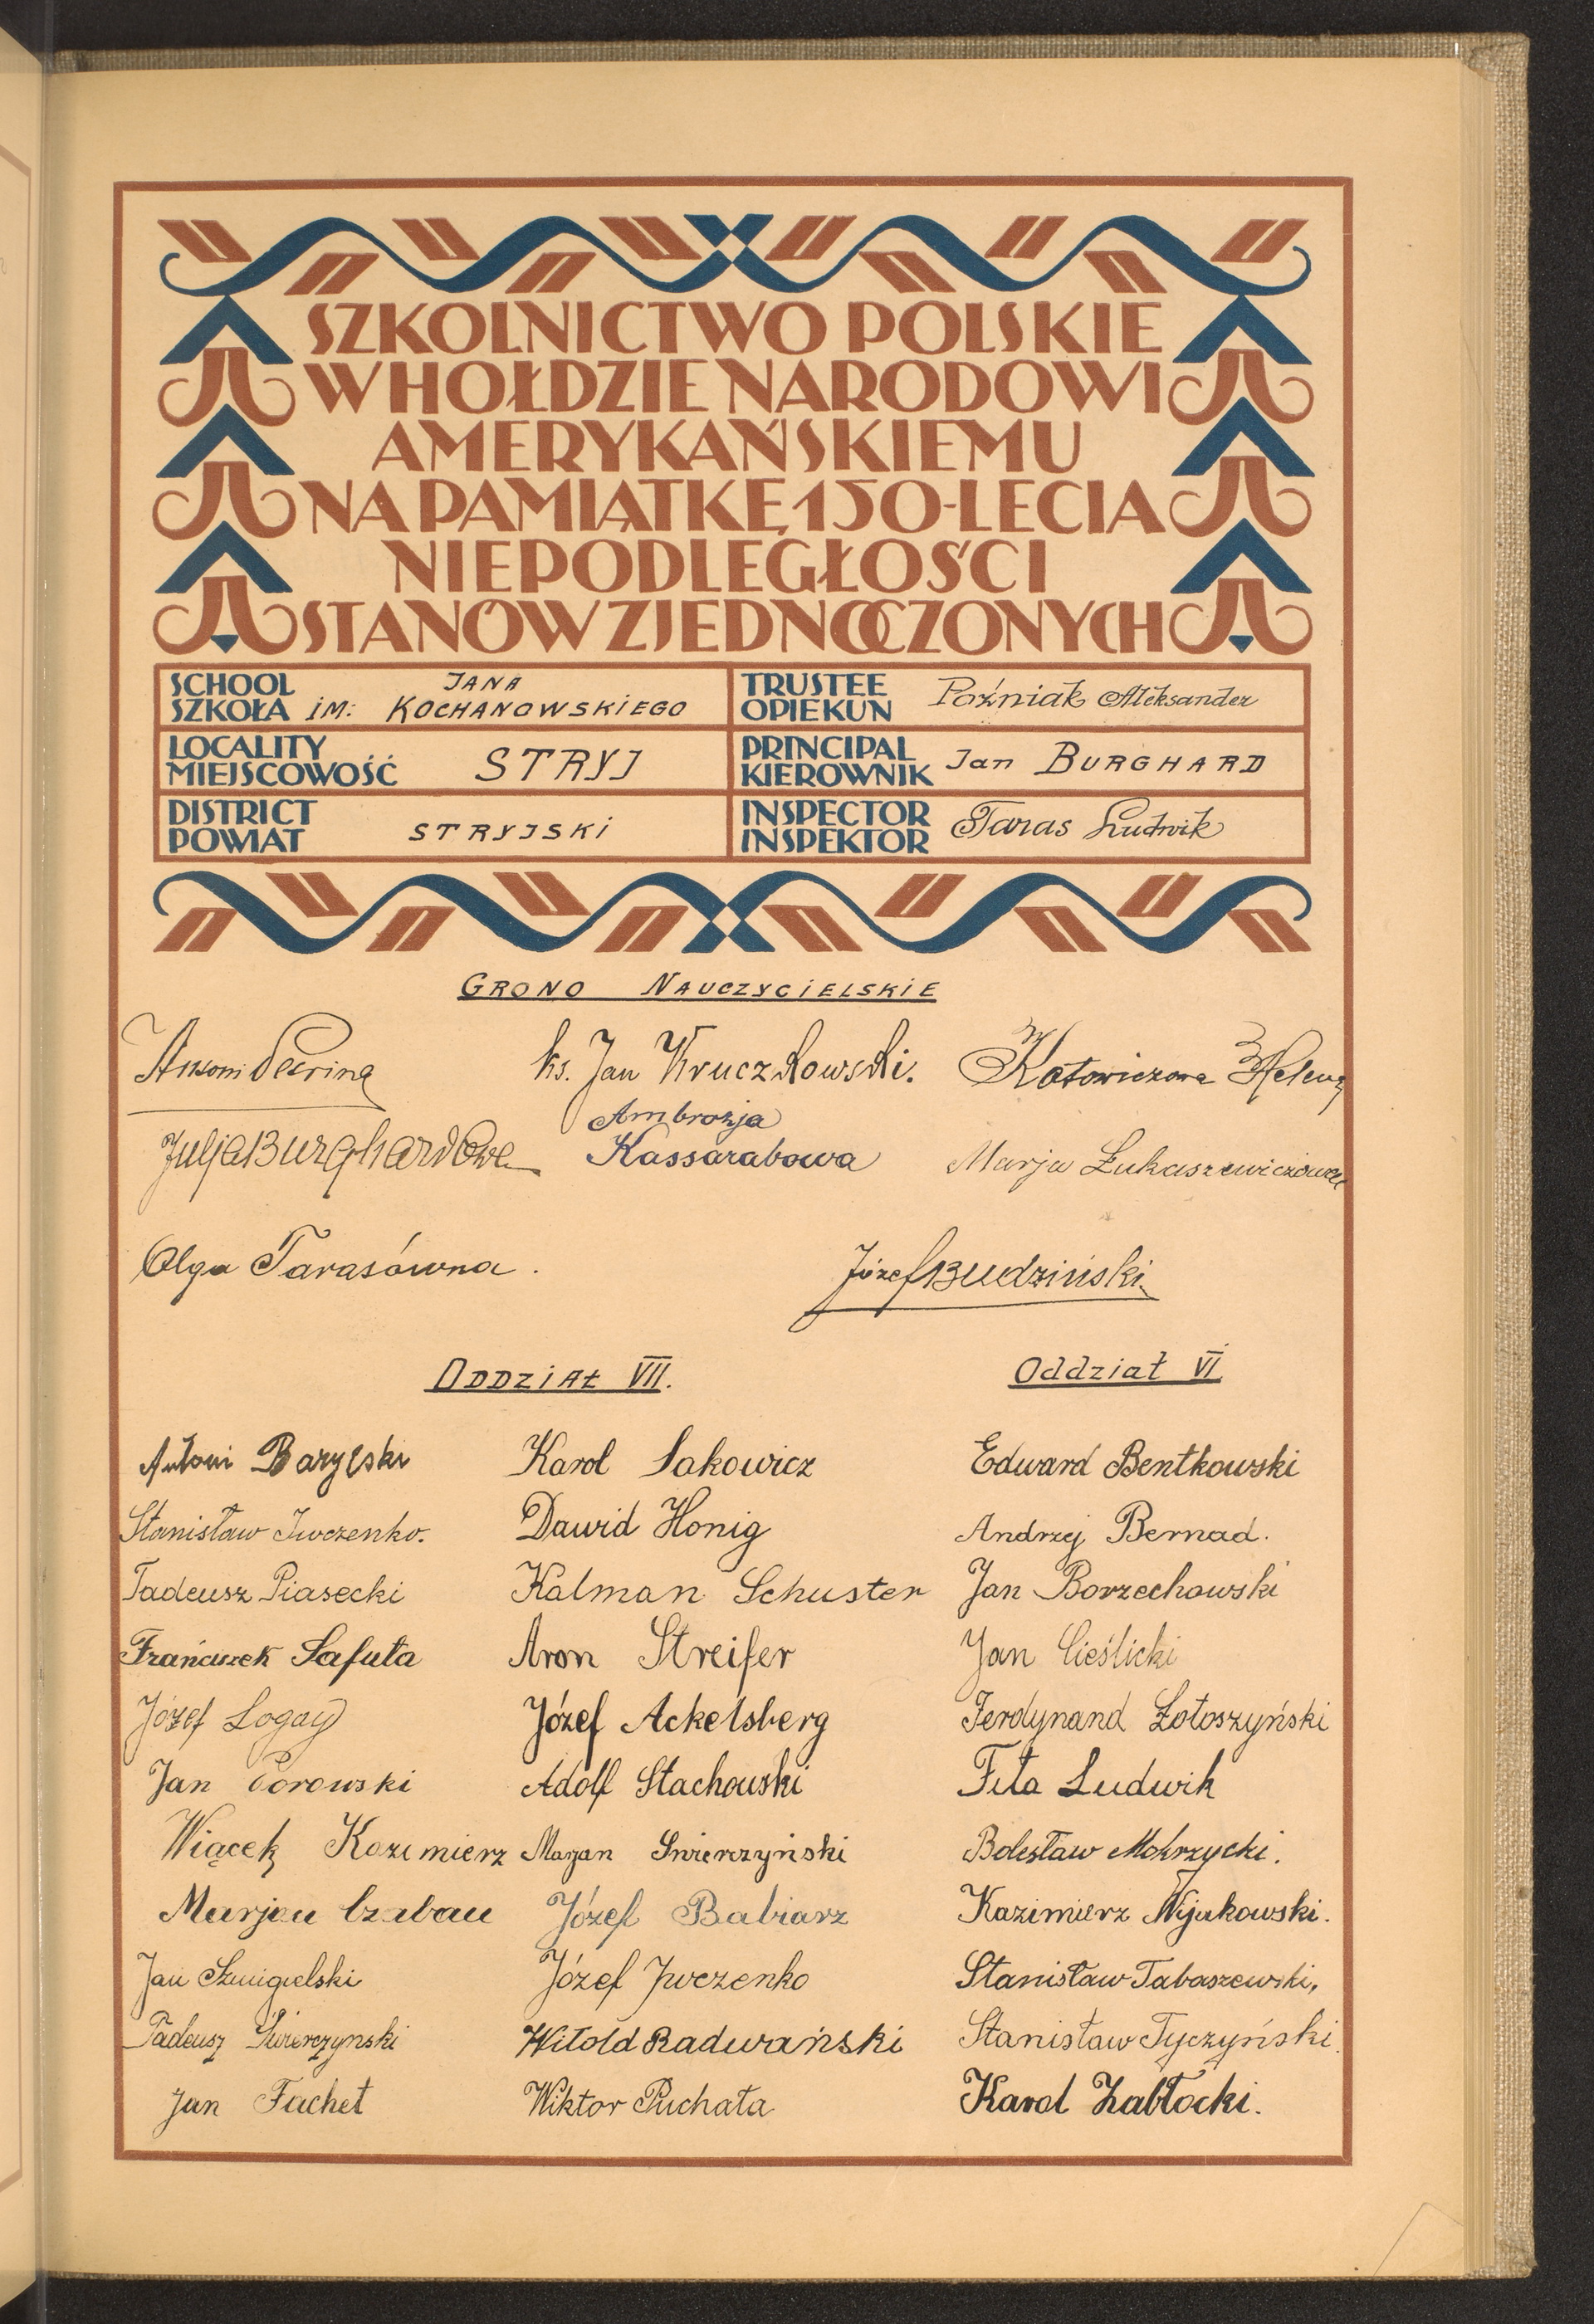 SZKOLNICTWO POLSKIE
W HOŁDZIE NARODOWI
AMERYKAŃSKIEMU
NA PAMIĄTKĘ 150-LECIA
NIEPODLEGŁOŚCI
STANÓW ZJEDNOCZONYCH
SCHOOL
SZKOŁA im: JANA KOCHANOWSKIEGO
TRUSTEE
OPIEKUN Poźniak Aleksander
LOCALITY
MIEJSCOWOŚĆ STRYJ
PRINCIPAL
KIEROWNIK Jan BURGHARD
DISTRICT
POWIAT STRYJSKI
INSPECTOR
INSPEKTOR Taras Ludwik
GRONO NAUCZYCIELSKIE
Antoni
ks. Jan Kruczkowski.
Kotowiczowa Helena
Julja Burghardowa
Ambrozja
Kassarabowa
Marja Łukaszewiczówna
Olga Tarasówna.
Józef Budziński
ODDZIAŁ VII.
Antoni Barylski
Stanisław Iwczenko.
Tadeusz Piasecki
Franciszek Safuta
Józef Logay
Jan Porowski
Wiącek Kazimierz
Marjan Czaban
Jan Szmigielski
Tadeusz Świerczynski
Jan Fachet
Karol Sakowicz
Dawid Honig
Kalman Schuster
Aron Streifer
Józef Ackelsberg
Adolf Stachowski
Marjan Swierczyński
Józef Babiarz
Józef Iwczenko
Witold Radwański
Wiktor Puchała
Oddział VI
Edward Bentkowski
Andrzej Bernad.
Jan Borzechowski
Jan Cieślicki
Ferdynand Łotoszyński
Fita Ludwik
Bolesław Mokrzycki.
Kazimierz Wijakowski.
Stanisław Tabaszewski.
Stanisław Tyczyński.
Karol Zabłocki.